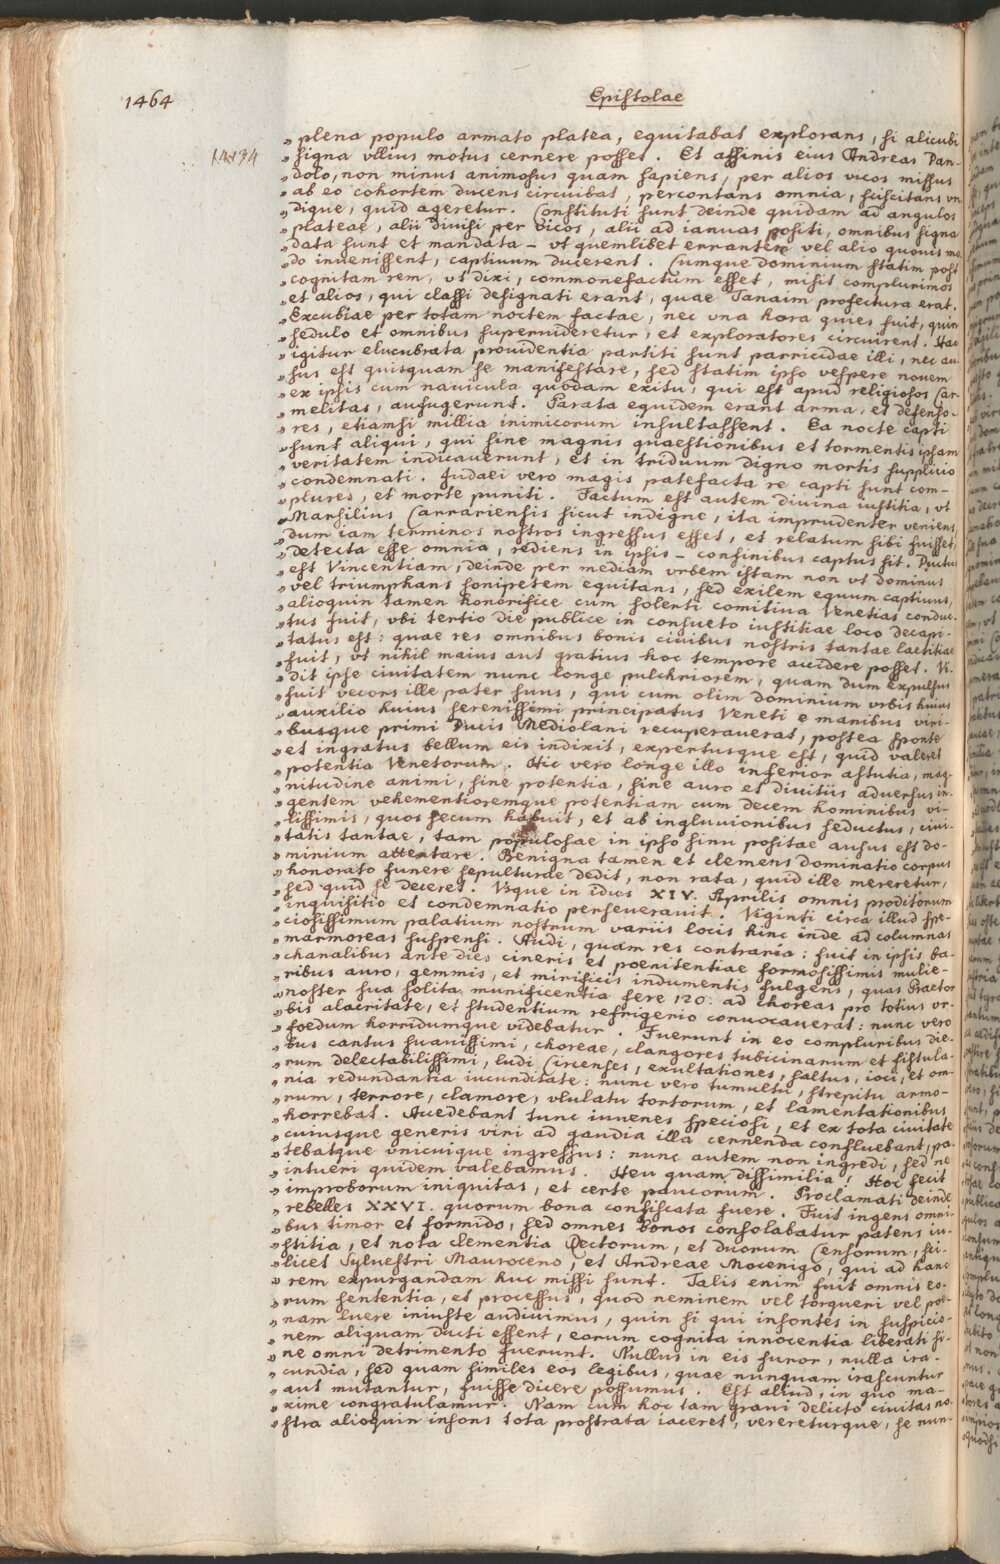 1464
Epistolae
14134
„ plena populo armato platea, equitabat explorans, si alicubi
„ signa vllius motus cernere posset. Et affinis eius Andreas Dan-
„ dolo, non minus animosus quam sapiens, per alios vicos missus
„ ab eo cohortem ducens circuibat, percontans omnia, sciscitans vn
„ dique, quid ageretur. Constituti sunt deinde quidam ad angulos
„ plateae, alii diuisi per vicos, alii ad ianuas positi, omnibus signa
„ data sunt et mandata – vt quemlibet errantem vel alio quouis mo
„ do inuenissent, captiuum ducerent. Cumque dominium statim post
„ cognitam rem, vt dixi, commonefactum esset, misit complurimos
„ et alios, qui classi designati erant, quae Tanaim profectura erat.
„ Excubiae per totam noctem factae, nec vna hora quies fuit, quin
„ sedulo et omnibus superuideretur, et exploratores circuirent. Hac
„ igitur elucubrata prouidentia partiti sunt parricidae illi, nec au
„ sus est quisquam se manifestare, sed statim ipso vespere nouem
„ ex ipsis cum nauicula quodam exitu, qui est apud religiosos Car-
„ melitas, aufugerunt. Parata equidem erant arma, et defenso-
„ res, etiamsi millia inimicorum insultassent. Ea nocte capti
„ sunt aliqui, qui sine magnis quaestionibus et tormentis ipsam
„ veritatem indicauerunt, et in triduum digno mortis supplicio
„ condemnati. Iudaei vero magis patefacta re capti sunt com-
„ plures, et morte puniti. Factum est autem diuina iustitia, vt
„ Marsilius Carrariensis sicut indigne, ita imprudenter veniens,
„ dum iam terminos nostros ingressus esset, et relatum sibi fuisset,
„ detecta esse omnia, rediens in ipsis – confinibus captus sit. Ductus
„ est Vincentiam, deinde per mediam vrbem istam non vt dominus
„ vel triumphans sonipetem equitans, sed exilem equum captiuus,
„ alioquin tamen honorifice cum solenti comitiua Venetias conduc-
„ tus fuit, vbi tertio die publice in consueto iustitiae loco decapi-
„ tatus est: quae res omnibus bonis ciuibus nostris tantae laetitiae
„ fuit, vt nihil maius aut gratius hoc tempore accidere posset. Vi-
„ dit ipse ciuitatem nunc longe pulchriorem, quam dum expulsus
„ fuit vecors ille pater suus, qui cum olim dominium vrbis huius
„ auxilio huius serenissimi principatus Veneti e manibus viri-
„ busque primi Ducis Mediolani recuperauerat, postea sponte
„ et ingratus bellum eis indixit, expertusque est, quid valeret
„ potentia Venetorum. Hic vero longe illo inferior astutia, mag-
„ nitudine animi, sine potentia, sine auro et diuitiis aduersus in-
„ gentem vehementioremque potentiam cum decem hominibus vi-
„ lissimis, quos secum habuit, et ab ingluuionibus seductus, ciui-
„ tatis tantae, tam populosae in ipso sinu positae ausus est do-
„ minium attentare. Benigna tamen et clemens dominatio corpus
„ honorato funere sepulturae dedit, non rata, quid ille mereretur,
„ sed quid se deceret. Vsque in idus XIV. Aprilis omnis proditorum
„ inquisitio et condemnatio perseuerauit. Viginti circa illud spe-
„ ciosissimum palatium nostrum variis locis hinc inde ad columnas
„ marmoreas suspensi. Audi, quam res contraria: fuit in ipsis ba-
„ chanalibus ante dies cineris et poenitentiae formosissimis mulie-
„ ribus auro, gemmis, et mirificis indumentis fulgens, quas Praetor
„ noster sua solita munificentia fere 120. ad choreas pro totius vr-
„ bis alacritate, et studentium refrigerio conuocauerat: nunc vero
„ foedum horridumque videbatur. Fuerunt in eo compluribus die-
„ bus cantus suauissimi, choreae, clangores tubicinarum et fistula-
„ rum delectabilissimi, ludi Circenses, exultationes, saltus, ioci, et om-
„ nia redundantia iucunditate: nunc vero tumultu, strepitu armo-
„ rum, terrore, clamore, vlulatu tortorum, et lamentationibus
„ horrebat. Accedebant tunc iuuenes speciosi, et ex tota ciuitate
„ cuiusque generis viri ad gaudia illa cernenda confluebant, pa-
„ tebatque vnicuique ingressus: nunc autem non ingredi, sed ne
„ intueri quidem valebamus. Heu quam dissimilia! Hoc fecit
„ improborum iniquitas, et certe paucorum. Proclamati deinde
„ rebelles XXVI. quorum bona confiscata fuere. Fuit ingens omni-
„ bus timor et formido, sed omnes bonos consolabatur patens iu-
„ stitia, et nota clementia Rectorum, et duorum Censorum, sci-
„ licet Syluestri Mauroceno, et Andreae Mocenigo, qui ad hanc
„ rem expurgandam huc missi sunt. Talis enim fuit omnis eo-
„ rum sententia, et processus, quod neminem vel torqueri vel poe-
„ nam luere iniuste audiuimus, quin si qui insontes in suspicio-
„ nem aliquam ducti essent, eorum cognita innocentia liberati si-
„ ne omni detrimento fuerunt. Nullus in eis furor, nulla ira-
„ cundia, sed quam similes eos legibus, quae nunquam irascuntur
„ aut mutantur, fuisse dicere possumus. Est aliud, in quo ma-
„ xime congratulamur. Nam cum hoc tam graui delicto ciuitas no-
„ stra alioquin insons tota prostrata iaceret, verereturque, se nun-